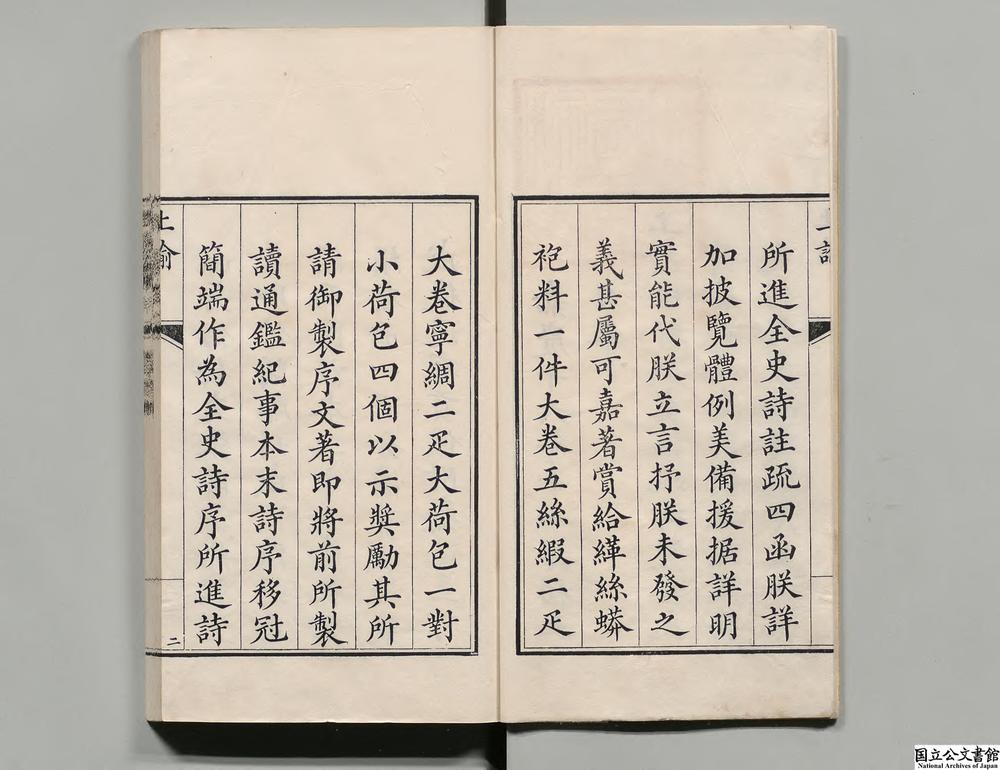 所進全史詩註疏四函朕詳
加披覽體例美備援据詳明
實能代朕立言抒朕未發之
義甚屬可嘉著賞給緙絲蟒
袍料一件大卷五絲緞二疋
大卷寧綢二疋大荷包一對
小荷包四個以示獎勵其所
請御製序文著即將前所製
讀通鑑紀事本末詩序移冠
簡端作為全史詩序所進詩
上諭
二
国立公文書館
National Archives of Japan